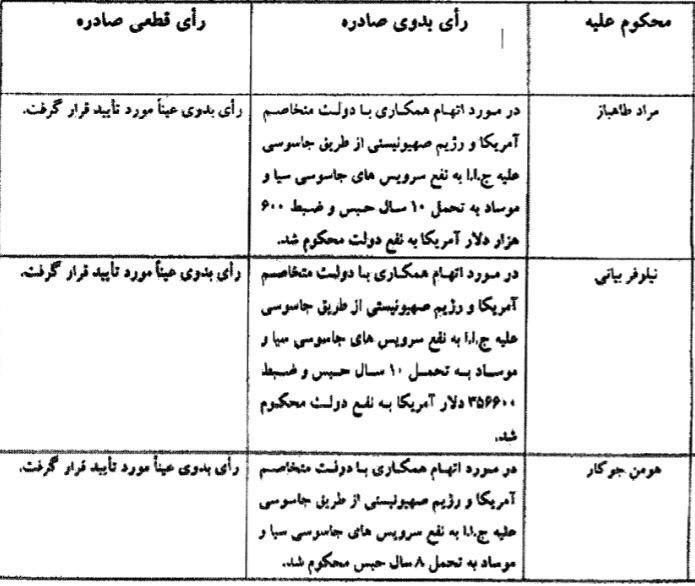 محکوم علیه
رأی بدوی صادره
رأی قطعی صادره
مراد طاهباز
در مورد اتهام همکاری با دولت متخاصم
آمریکا و رژیم صهیونیستی از طریق جاسوسی
علیه ج.ا.ا به نفع سرویس های جاسوسی سیا و
موساد به تحمل ۱۰ سال حبس و ضبط ۶۰۰
هزار دلار آمریکا به نفع دولت محکوم شد.
رأی بدوی عیناً مورد تأیید قرار گرفت.
نیلوفر بیانی
در مورد اتهام همکاری با دولت متخاصم
آمریکا و رژیم صهیونیستی از طریق جاسوسی
علیه ج.ا.ا به نفع سرویس های جاسوسی سیا و
موساد به تحمل ۱۰ سال حبس و ضبط
۳۵۶۶۰۰ دلار آمریکا به نفع دولت محکوم
شد.
رأی بدوی عیناً مورد تأیید قرار گرفت.
هومن جوکار
در مورد اتهام همکاری با دولت متخاصم
آمریکا و رژیم صهیونیستی از طریق جاسوسی
علیه ج.ا.ا به نفع سرویس های جاسوسی سیا و
موساد به تحمل ۸ سال حبس محکوم شد.
رأی بدوی عیناً مورد تأیید قرار گرفت.